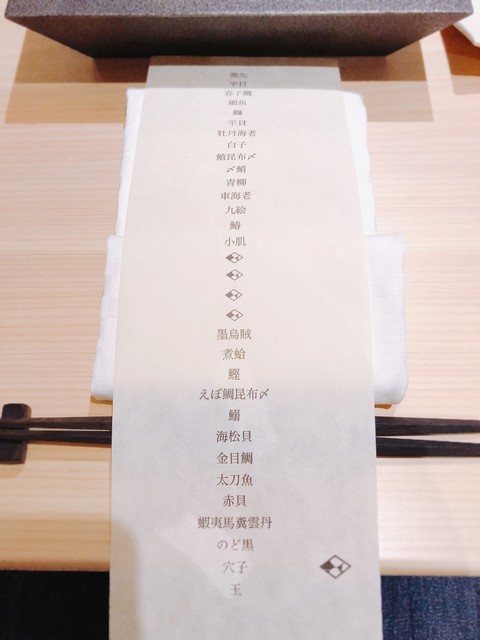 平目
春子鯛
細魚
平貝
牡丹海老
白子
鱚昆布〆
〆鯖
青柳
車海老
九絵
鰆
小肌
墨烏賊
煮蛤
鰹
えぼ鯛昆布〆
鰯
海松貝
金目鯛
太刀魚
赤貝
蝦夷馬糞雲丹
のど黒
穴子
玉